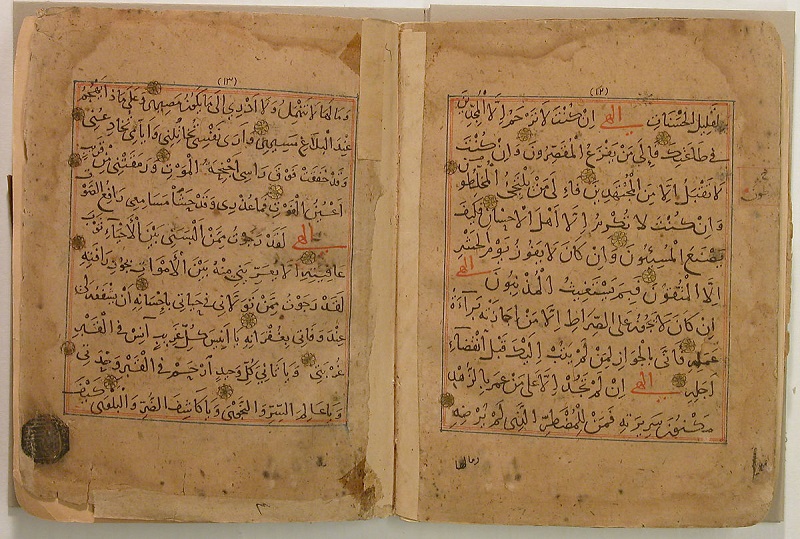 (١٢)
لقليل الحسنات الهي ان كنت لا ترحم الا المجدين
في طاعتك فالى من يفزع المقصرون وان كنت
لا تقبل الا من المجتهدين فالى من يلتجئ المخلطون
وان كنت لا تكرم الا اهل الاحسان فكيف
يصنع المسيئون وان كان لا يفوز يوم الحشر
الا المتقون فبمن يستغيث المذنبون الهي
ان كان لا يجوز على الصراط الا من اجازته براءة
عمله فانى بالجواز لمن لم يتب اليك قبل انقضاء
اجله الهي ان لم تجد الا على من عمر بالزهد
مكنون سريرته فمن للمضطر الذي لم يرضه
وما لها
(١٣)
وما لها لا تنهمل ولا ادري الى ما يكون مصيري وعلى ماذا يهجم
عند البلاغ مسيري وارى نفسي تخاتلني وايامي تخادعني
وقد خفقت فوق راسي اجنحة الموت ورمقتني من قريب
اعين الفوت فما عذري وقد حشا مسامعي رافع الصوت
الهي لقد رجوت ممن البسني بين الاحياء ثوب
عافيته الا يعريني منه بين الاموات بجود رافته
لقد رجوت ممن تولاني في حياتي باحسانه ان يشفعه لي
عند وفاتي بغفرانه يا انيس كل غريب آنس في القبر
غربتي ويا ثاني كل وحيد ارحم في القبر وحدتي
ويا عالم السر والنجوى ويا كاشف الضر والبلوى كيف